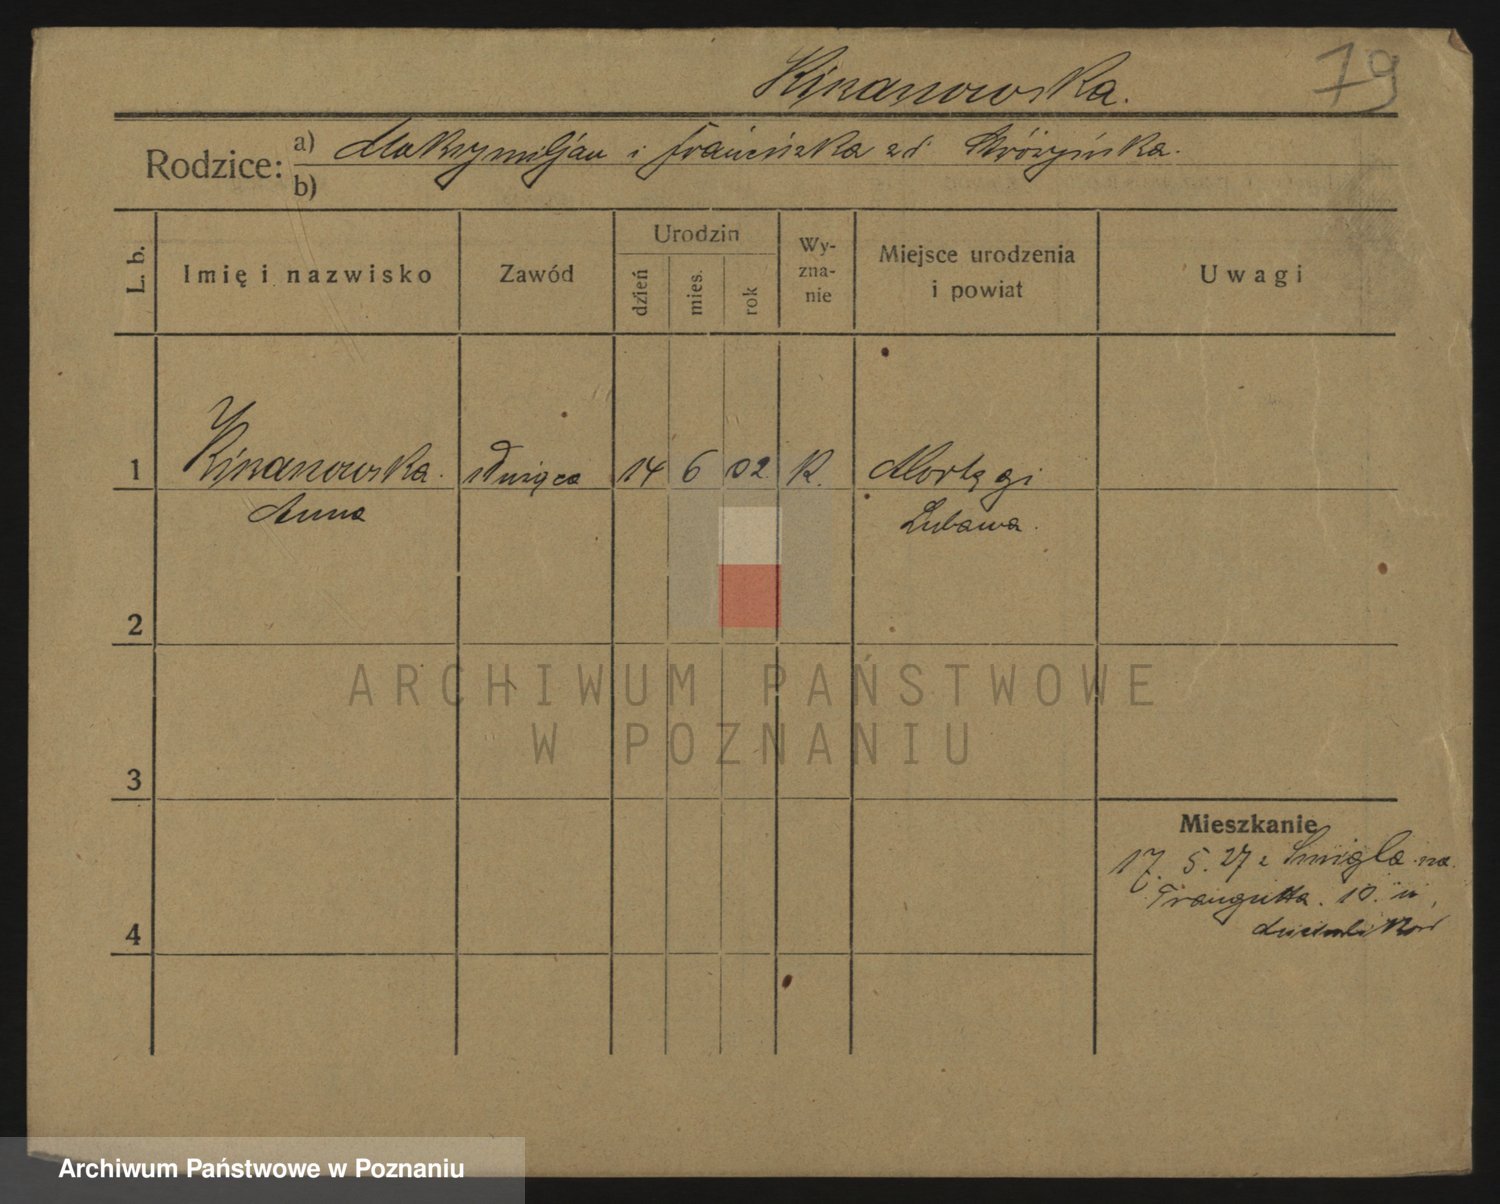 79
Kinanowska.
Rodzice:
a) Maksymiljan i Franciszka zd Stróżyńska.
b)
L. b.
Imię i nazwisko
Zawód
Urodzin
dzień
mies.
rok
Wy-
zna-
nie
Miejsce urodzenia
i powiat
Uwagi
1
Kinanowska
Anna
służąca
14
6
02
K.
Mortęgi
Lubawa.
2
3
4
Mieszkanie
17. 5. 27 z Śmigla na
Traugutta. 10. u
ARCHIWUM PAŃSTWOWE
W POZNANIU
Archiwum Państwowe w Poznaniu